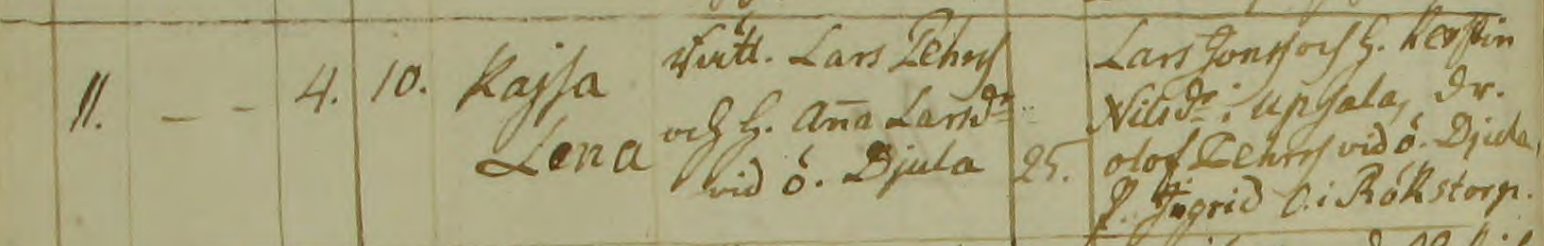 11. — — 4. 10. Kajsa Lena
Lars Pehrs
och H. Anna Larsdr
vid ö. Djula 25.
Lars Jons och H. Kerstin
Nilsdr i Upsala, Dr.
Olof Pehrs vid ö. Djula,
P. Ingrid O. i Rökstorp.